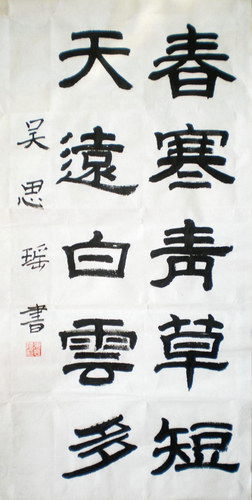 春寒青草短
天遠白雲多
吴思瑶書